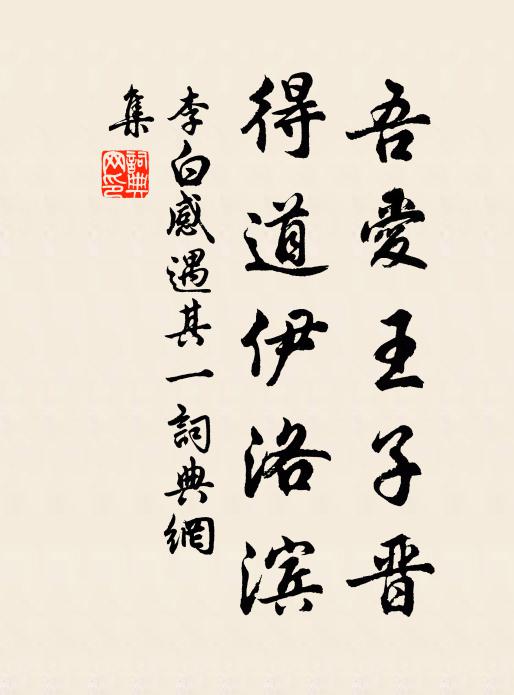 吾愛王子晋
得道伊洛滨
李白感遇其一詞典網
集
詞典網印